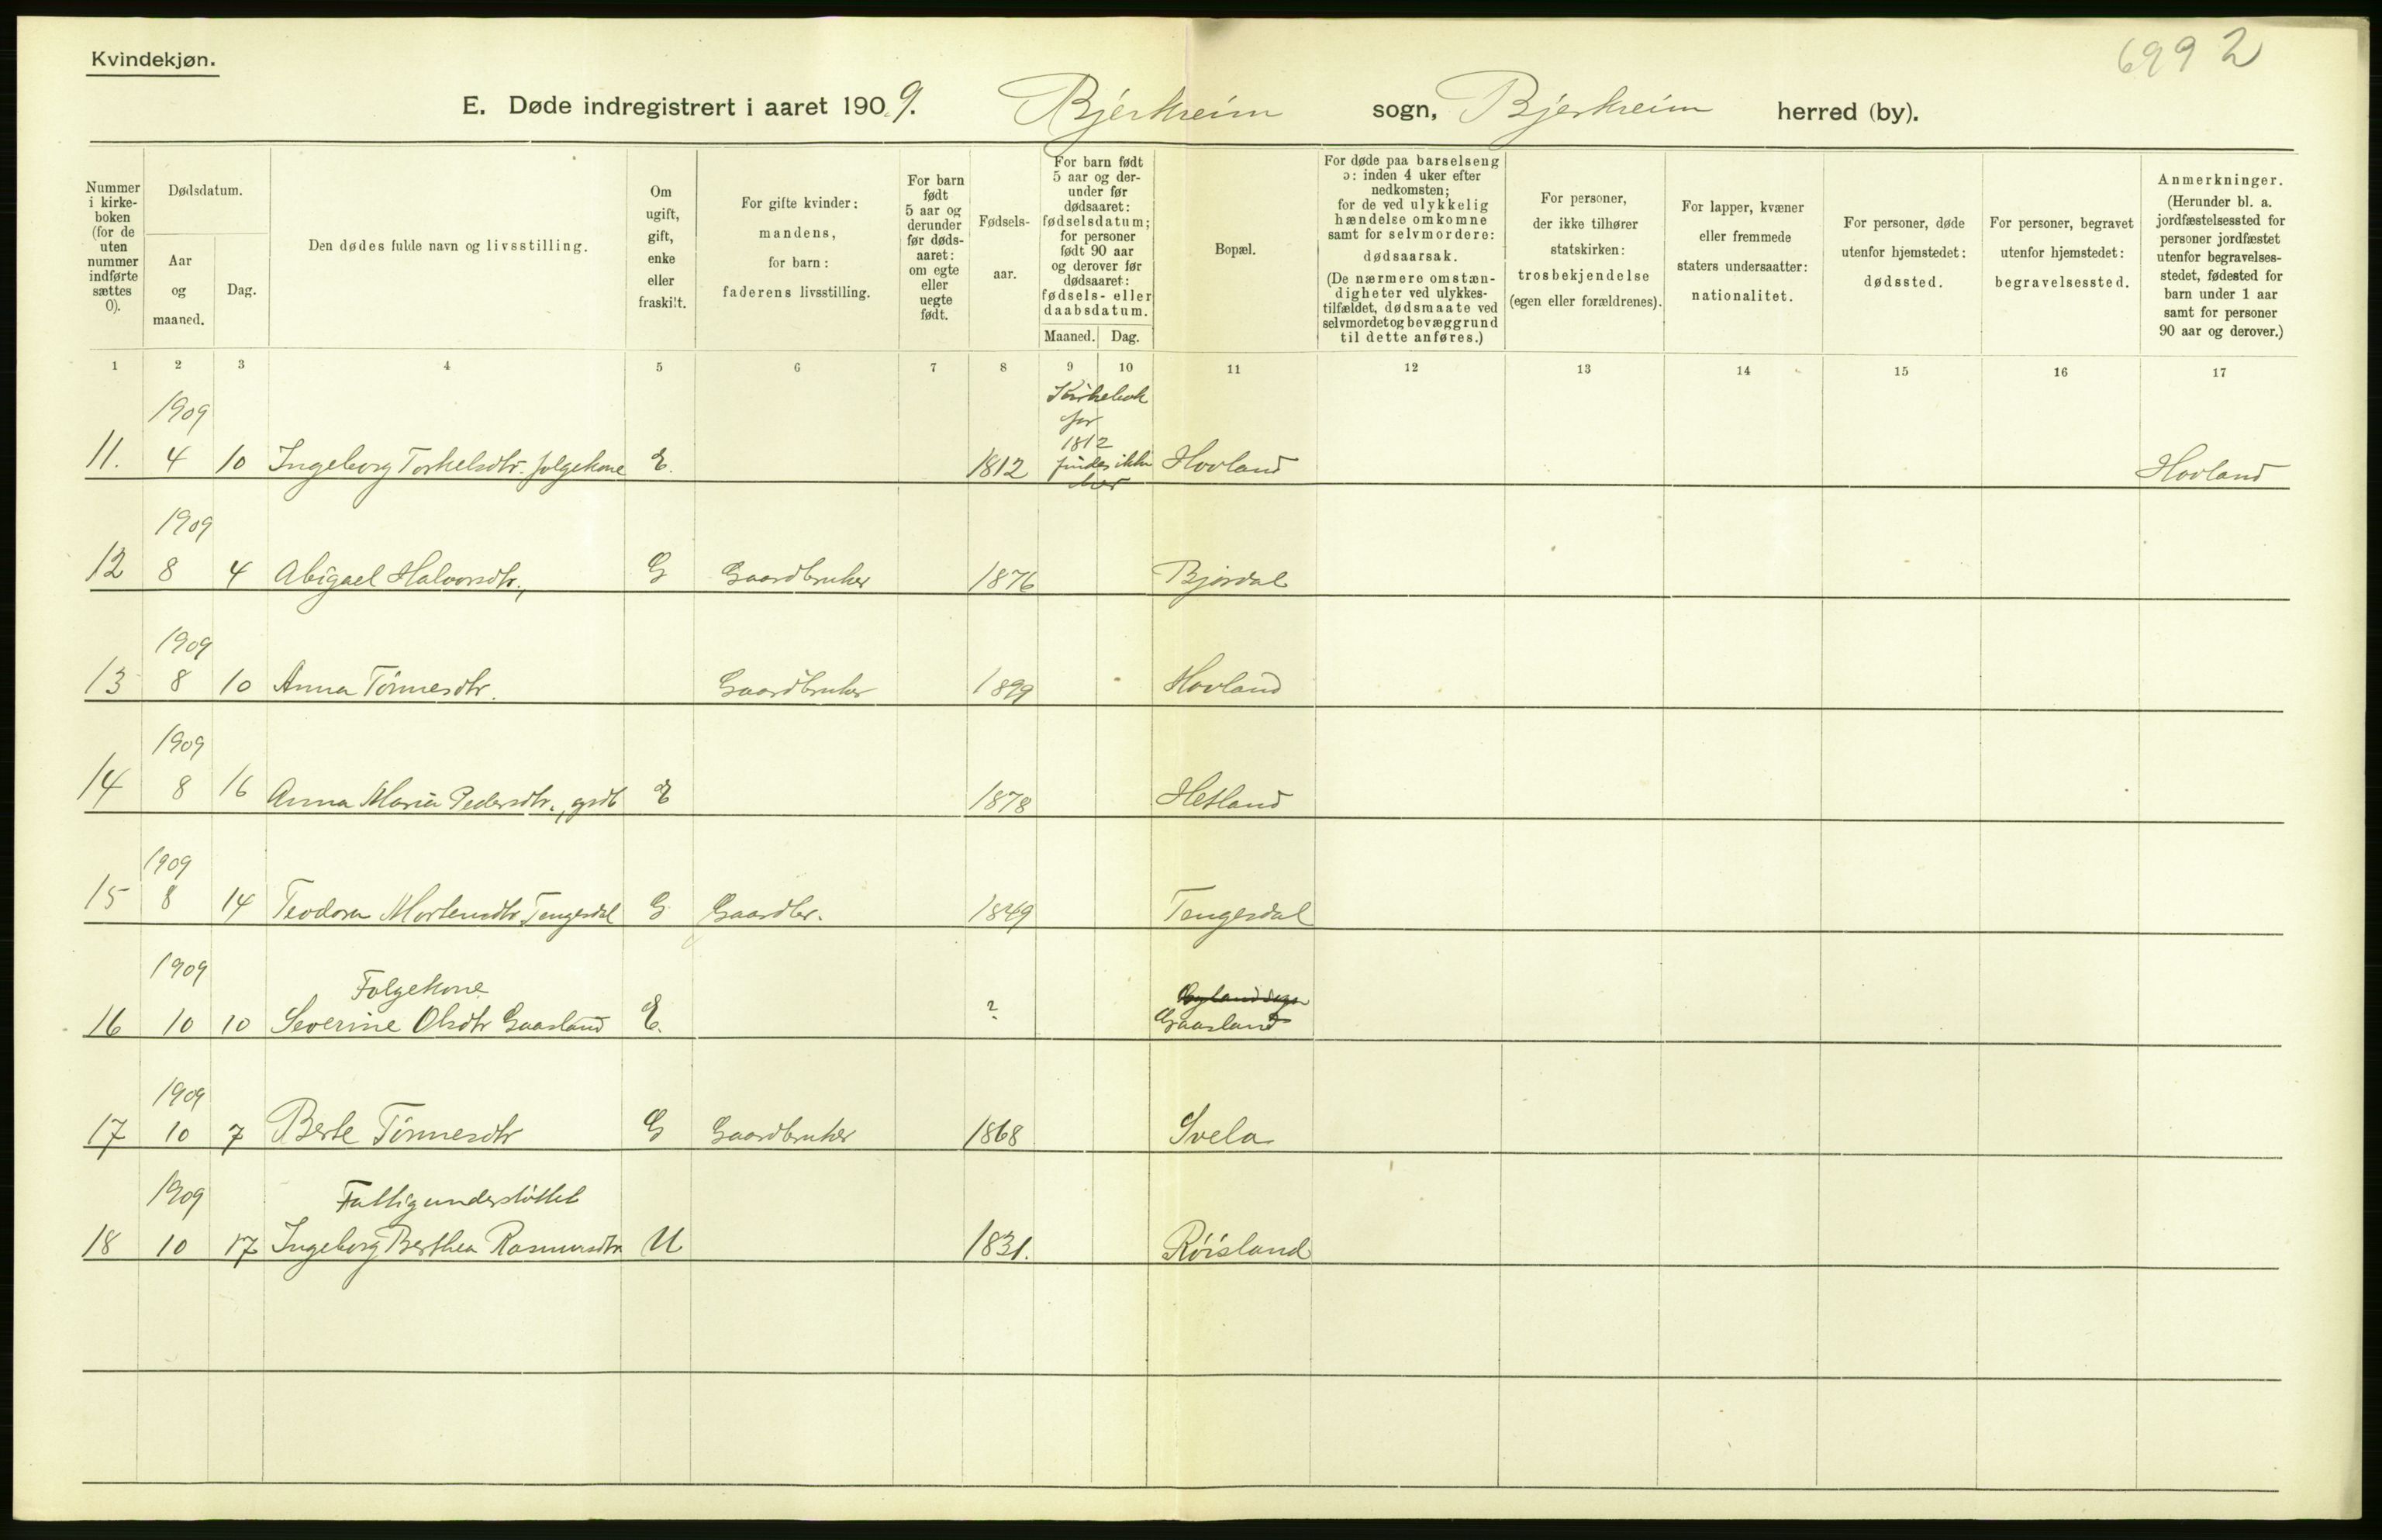 Kvindekjøn.
6992
E. Døde indregistrert i aaret 1909. Bjerkreim sogn, Bjerkreim herred (by).
Nummer i kirkeboken (for de uten nummer indførte sættes 0).
Dødsdatum.
Aar og maaned.
Dag.
Den dødes fulde navn og livsstilling.
Om ugift, gift, enke eller fraskilt.
For gifte kvinder: mandens, for barn: faderens livsstilling.
For barn født 5 aar og derunder før dødsaaret: om egte eller uegte født.
Fødselsaar.
For barn født 5 aar og derunder før dødsaaret: fødselsdatum; for personer født 90 aar og derover før dødsaaret: fødsels- eller daabsdatum.
Maaned. Dag.
Bopæl.
For døde paa barselseng ɔ: inden 4 uker efter nedkomsten; for de ved ulykkelig hændelse omkomne samt for selvmordere: dødsaarsak. (De nærmere omstændigheter ved ulykkestilfældet, dødsmaate ved selvmordet og bevæggrund til dette anføres.)
For personer, der ikke tilhører statskirken: trosbekjendelse (egen eller forældrenes).
For lapper, kvæner eller fremmede staters undersaatter: nationalitet.
For personer, døde utenfor hjemstedet: dødssted.
For personer, begravet utenfor hjemstedet: begravelsessted.
Anmerkninger. (Herunder bl. a. jordfæstelsessted for personer jordfæstet utenfor begravelsesstedet, fødested for barn under 1 aar samt for personer 90 aar og derover.)
1 2 3 4 5 6 7 8 9 10 11 12 13 14 15 16 17
1909 Kirkebok
for
1812
11. 4 10 Ingeborg Torkelsdtr. folgekone E. 1812 findes ikke Hovland Hovland
her
1909
12 8 4 Abigael Halvorsdtr., G Gaardbruker 1876 Bjordal
1909
13 8 10 Anna Tönnesdtr. Gaardbruker 1899 Hovland
1909
14 8 16 Anna Maria Pedersdtr., E 1878 Hetland
1909
15 8 14 Teodora Mortensdtr Tengesdal G Gaardbr. 1849 Tengesdal
1909 Folgekone
16 10 10 Severine Olsdtr Gaasland E. ? Gaasland
1909
17 10 7 Berte Tönnesdtr G Gaardbruker 1868 Svela
1909 Fattigunderstöttet
18 10 17 Ingeborg Berthea Rasmusdtr U 1831. Röisland